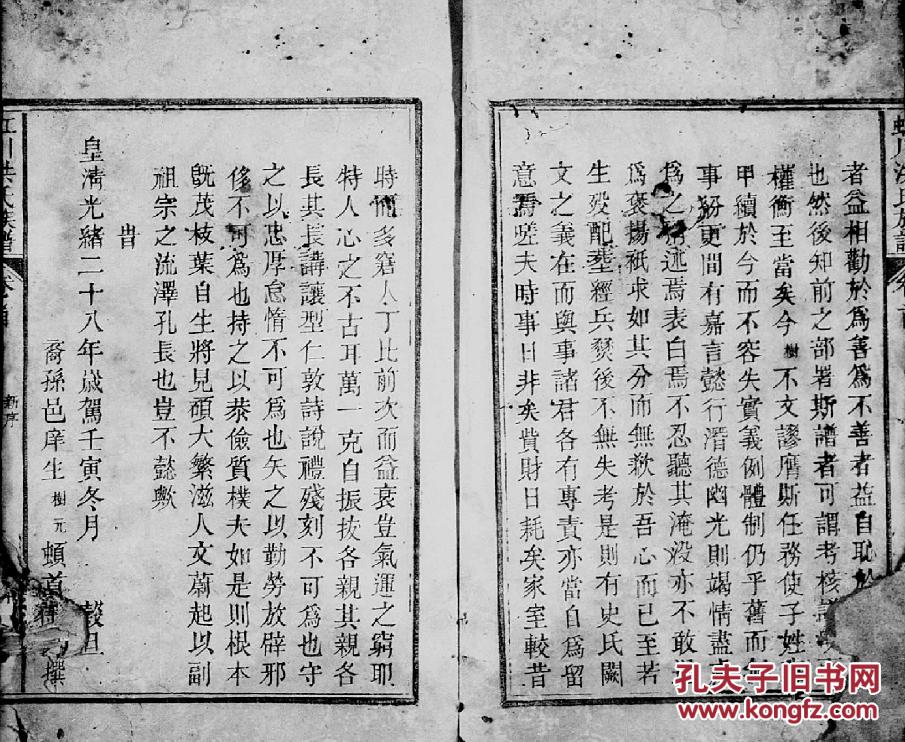 川洪氏族譜
者益相勸於為善為不善者益自恥於
也然後知前之部署斯譜者可謂考核
權衡至當矣今樹不文謬膺斯任務使子姓
甲續於今而不容失實義例體制仍乎舊而
事紛更間有嘉言懿行潛德幽光則竭情盡
為之稱述焉表白焉不忍聽其淹沒亦不敢
為褒揚祇求如其分而無歉於吾心而已至若
生歿配塟經兵燹後不無失考是則有史氏闕
文之義在而與事諸君各有專責亦當自為留
意焉嗟夫時事日非矣費財日耗矣家室較昔
時而多窘人丁比前次而益衰豈氣運之窮耶
特人心之不古耳萬一克自振拔各親其親各
長其長講讓型仁敦詩說禮殘刻不可為也守
之以忠厚怠惰不可為也矢之以勤勞放辟邪
侈不可為也持之以恭儉質樸夫如是則根本
旣茂枝葉自生將見碩大繁滋人文蔚起以副
祖宗之流澤孔長也豈不懿歟
旹
皇清光緒二十八年歲駕壬寅冬月 榖旦
裔孫邑庠生樹元頓首 撰
川洪氏族譜
新序
孔夫子旧书网
www.kongfz.com